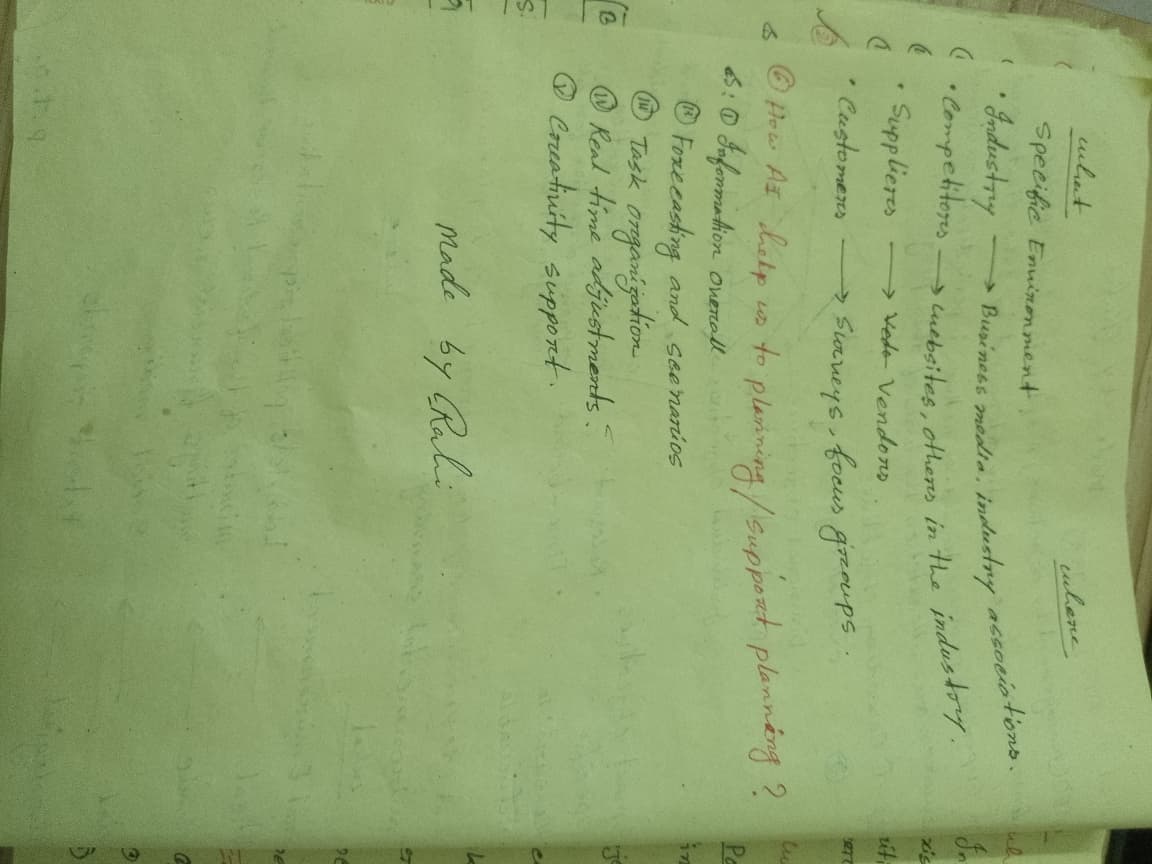 what where
Specific Environment
• Industry → Business media, industry associations.
• Competitors → websites, others in the industry.
• Suppliers → Vendors
• Customers → Surveys, focus groups.
⑥ How AI help us to planning/support planning?
ⓘ Information overall
ⓘⓘ Forecasting and scenarios
ⓘⓘⓘ Task organization
ⓘⓥ Real time adjustments.
ⓥ Creativity support.
Made by Rahi